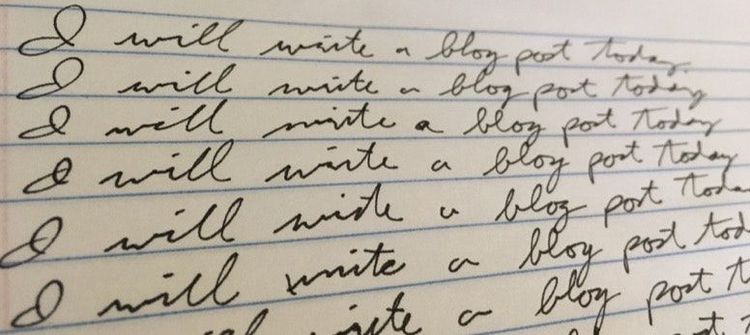 I will write a blog post today.
I will write a blog post today
I will write a blog post today
I will write a blog post today
I will write a blog post toda
I will write a blog post tod
I will write a blog post t